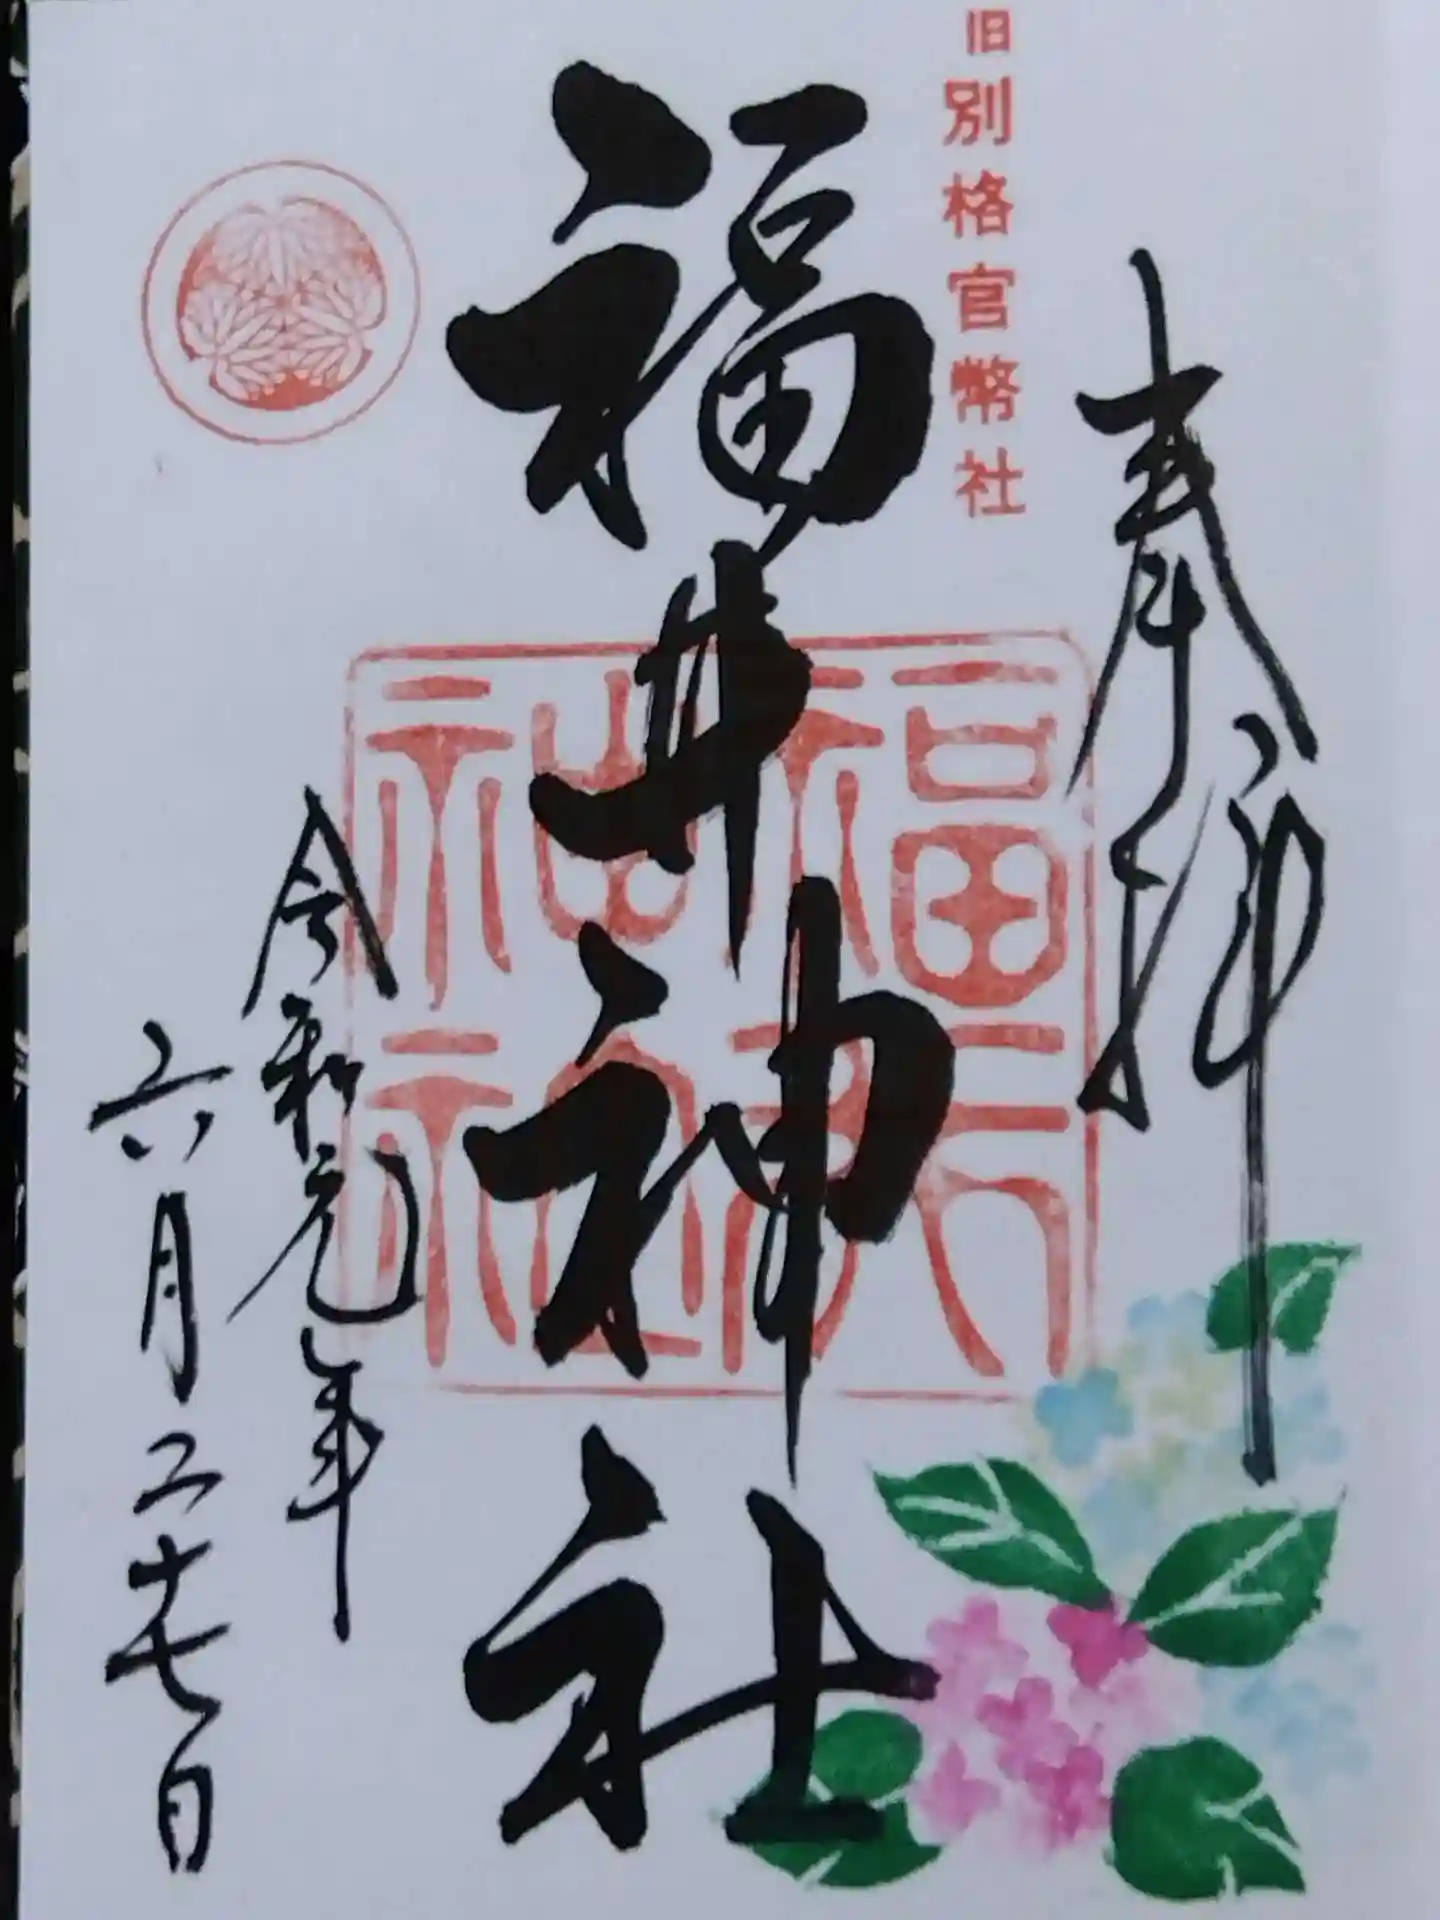 奉拝
旧別格官幣社
福井神社
令和元年
六月二十七日